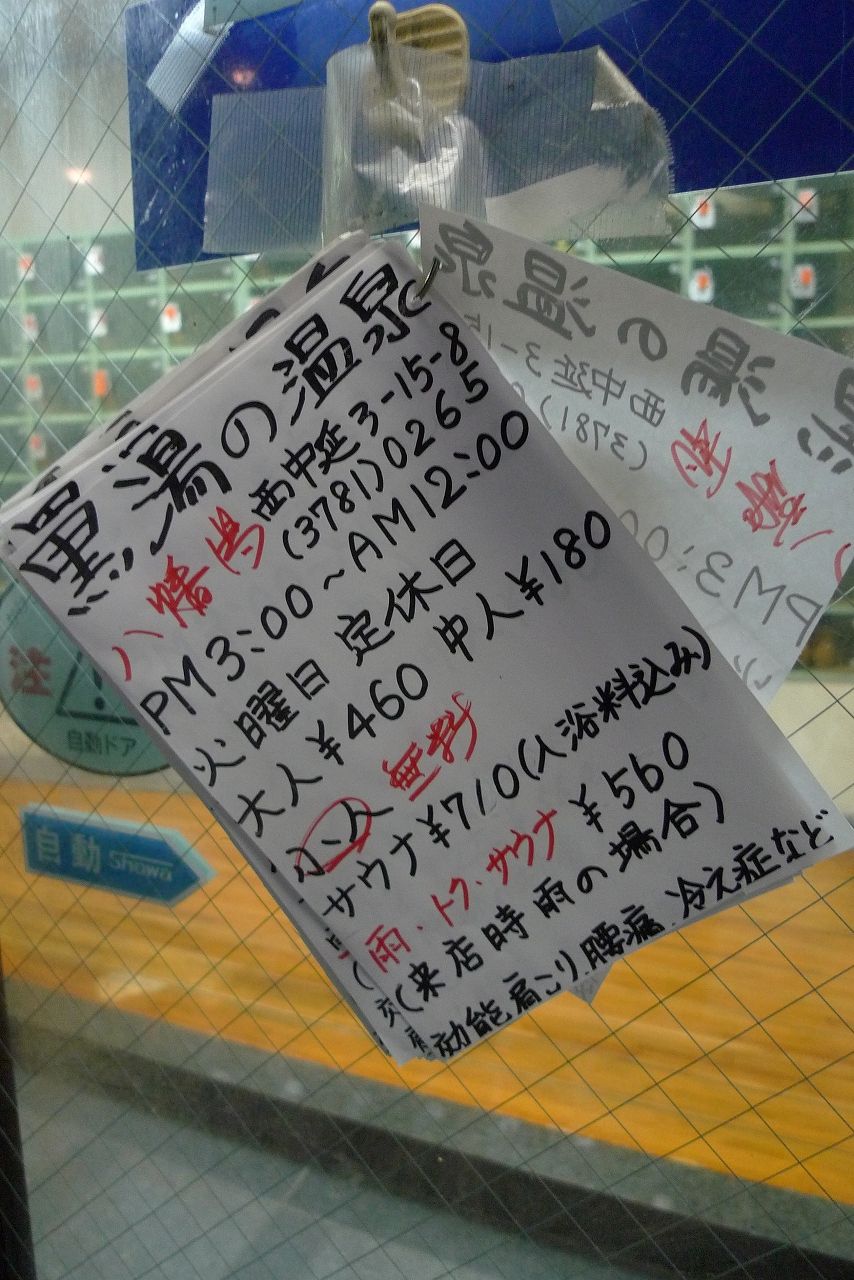 黒湯の温泉
西中延3-15-8
八幡湯
(3781)0265
PM3:00～AM12:00
火曜日 定休日
大人¥460 中人¥180
小人 無料
サウナ¥710(入浴料込み)
雨、トク、サウナ ¥560
(来店時雨の場合)
効能肩こり腰痛.冷え症など
の温泉
西中延3-15
(3781)
PM3:00
自動ドア
自動 Showa